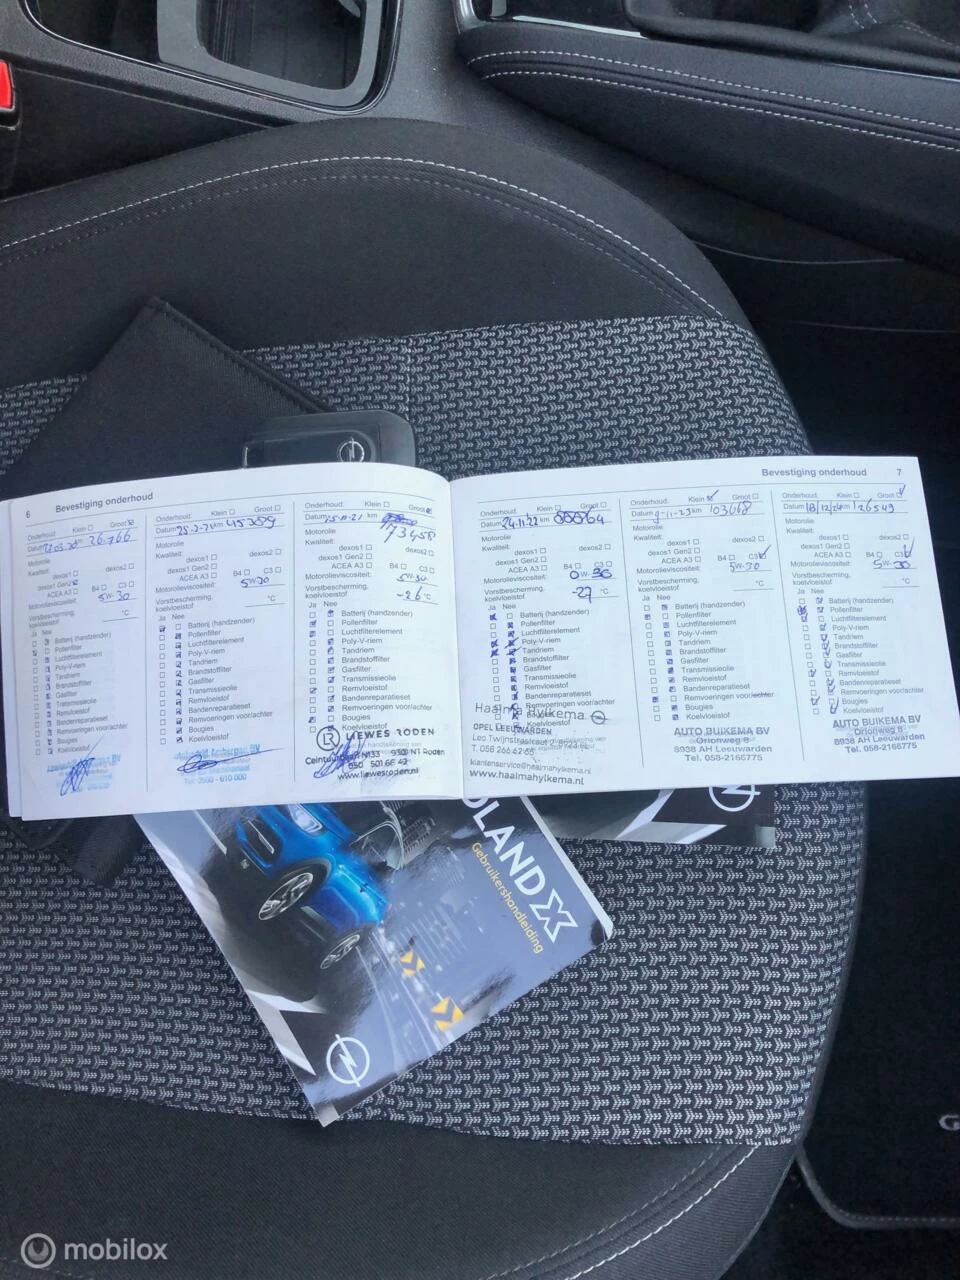 6 Bevestiging onderhoud
Onderhoud: Klein Groot
Datum km 26.766
Motorolie
Kwaliteit:
dexos1 dexos2
dexos1 Gen2
ACEA A3 B4 C3
Motorolieviscositeit: 5W-30
Vorstbescherming, koelvloeistof °C
Ja Nee
Batterij (handzender)
Pollenfilter
Luchtfilterelement
Poly-V-riem
Tandriem
Brandstoffilter
Gasfilter
Transmissieolie
Remvloeistof
Bandenreparatieset
Remvoeringen voor/achter
Bougies
Koelvloeistof
Onderhoud: Klein Groot
Datum 25-2-21 km 45259
Motorolie
Kwaliteit:
dexos1 dexos2
dexos1 Gen2
ACEA A3 B4 C3
Motorolieviscositeit:
Vorstbescherming, koelvloeistof °C
Ja Nee
Batterij (handzender)
Pollenfilter
Luchtfilterelement
Poly-V-riem
Tandriem
Brandstoffilter
Gasfilter
Transmissieolie
Remvloeistof
Bandenreparatieset
Remvoeringen voor/achter
Bougies
Koelvloeistof
Onderhoud: Klein Groot
Datum km
73458
Motorolie
Kwaliteit:
dexos1 dexos2
dexos1 Gen2
ACEA A3 B4 C3
Motorolieviscositeit: 5W-30
Vorstbescherming, koelvloeistof -26 °C
Ja Nee
Batterij (handzender)
Pollenfilter
Luchtfilterelement
Poly-V-riem
Tandriem
Brandstoffilter
Gasfilter
Transmissieolie
Remvloeistof
Bandenreparatieset
Remvoeringen voor/achter
Bougies
LIEWES RODEN
Ceintuurbaan N133 9301 NT Roden
050 501 68 42
www.liewesroden.nl
Bevestiging onderhoud 7
Onderhoud: Klein Groot
Datum 24-11-22 km
Motorolie
Kwaliteit:
dexos1 dexos2
dexos1 Gen2
ACEA A3 B4 C3
Motorolieviscositeit: 0W-30
Vorstbescherming, koelvloeistof -27 °C
Ja Nee
Batterij (handzender)
Pollenfilter
Luchtfilterelement
Poly-V-riem
Tandriem
Brandstoffilter
Gasfilter
Transmissieolie
Remvloeistof
Bandenreparatieset
Remvoeringen voor/achter
Bougies
Koelvloeistof
Haaima Hylkema
OPEL LEEUWARDEN
T. 058 266 62 65
klantenservice@haaimahylkema.nl
www.haaimahylkema.nl
Onderhoud: Klein Groot
Datum 9-11-23 km 103668
Motorolie
Kwaliteit:
dexos1 dexos2
dexos1 Gen2
ACEA A3 B4 C3
Motorolieviscositeit: 5W-30
Vorstbescherming, koelvloeistof °C
Ja Nee
Batterij (handzender)
Pollenfilter
Luchtfilterelement
Poly-V-riem
Tandriem
Brandstoffilter
Gasfilter
Transmissieolie
Remvloeistof
Bandenreparatieset
Remvoeringen voor/achter
Bougies
Koelvloeistof
AUTO BUIKEMA BV
Orionweg 8
8938 AH Leeuwarden
Tel. 058-2166775
Onderhoud: Klein Groot
Datum 18/12/24 km 126549
Motorolie
Kwaliteit:
dexos1 dexos2
dexos1 Gen2
ACEA A3 B4 C3
Motorolieviscositeit: 5W-30
Vorstbescherming, koelvloeistof °C
Ja Nee
Batterij (handzender)
Pollenfilter
Luchtfilterelement
Poly-V-riem
Tandriem
Brandstoffilter
Gasfilter
Transmissieolie
Remvloeistof
Bandenreparatieset
Remvoeringen voor/achter
Bougies
Koelvloeistof
AUTO BUIKEMA BV
Orionweg 8
8938 AH Leeuwarden
Tel. 058-2166775
OLAND X
Gebruikershandleiding
G
mobilox